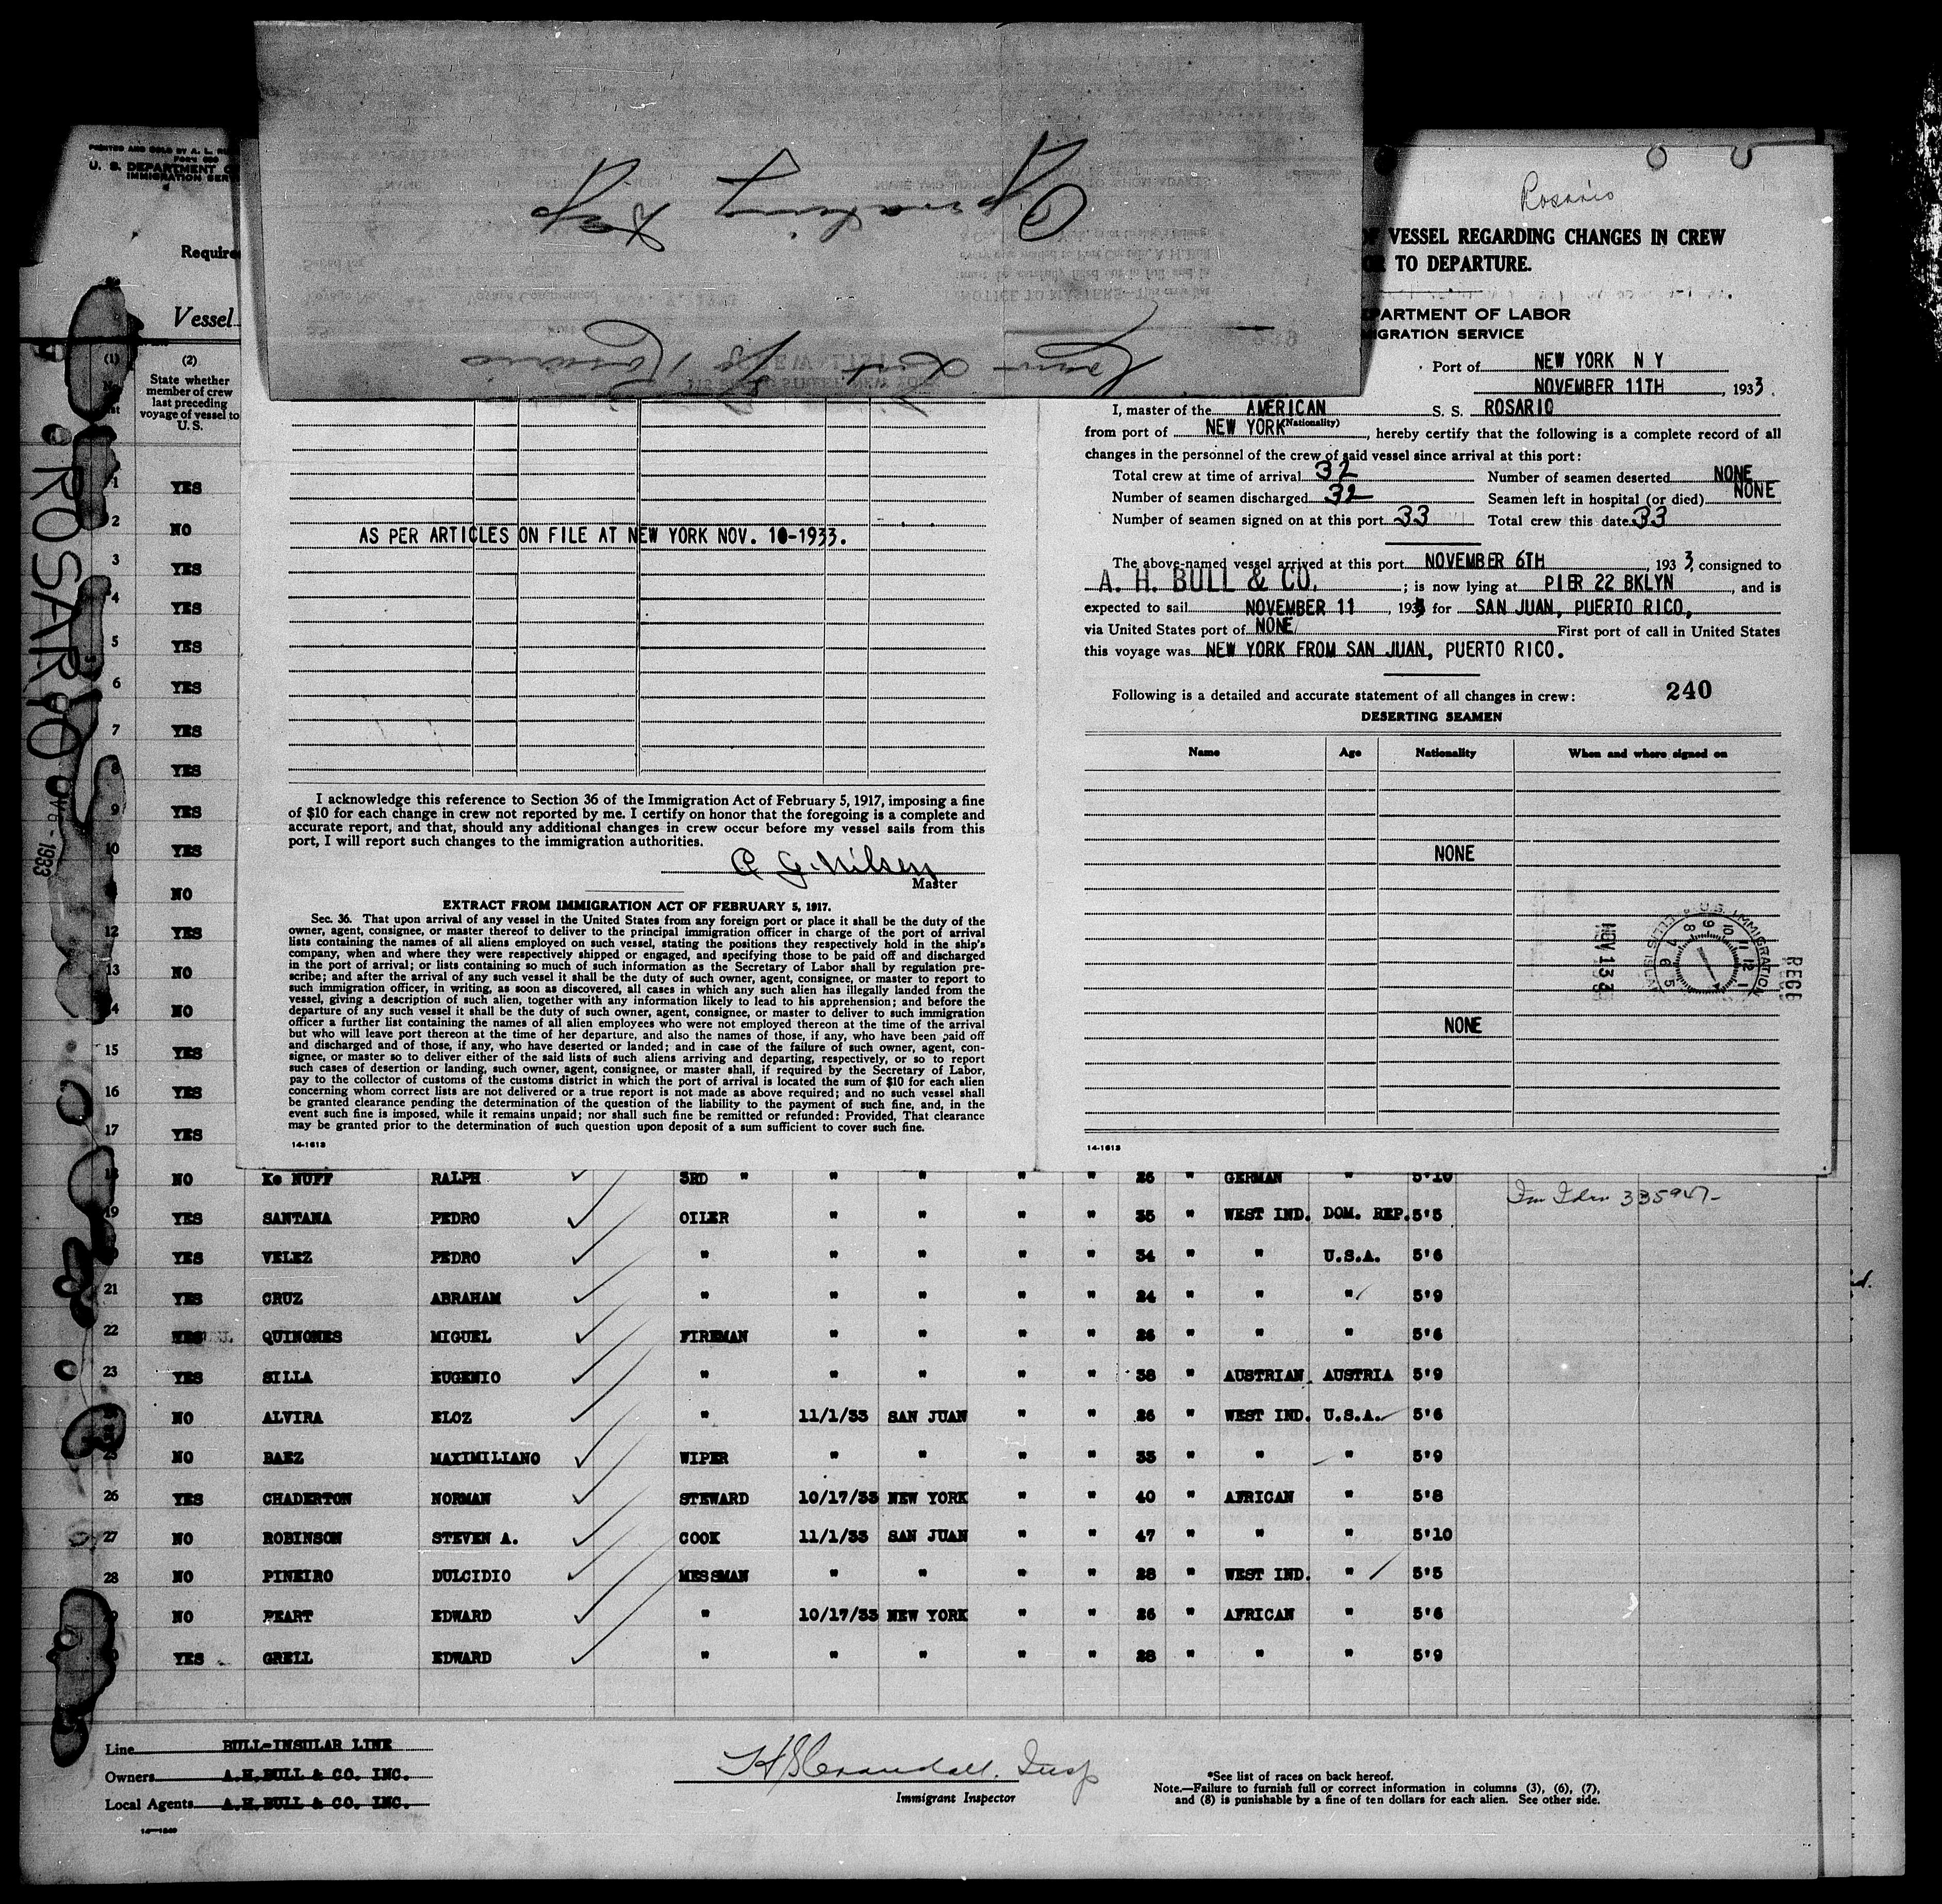 PRINTED AND SOLD BY A. L.
FORM 680
U. S. DEPARTMENT
IMMIGRATION SER
Require
Vessel
(1)
(2)
State whether
member of crew
last preceding
voyage of vessel to
U. S.
ROSARIO
1933
1 YES
2 NO
3 YES
4 YES
5 YES
6 YES
7 YES
8 YES
9 YES
10 YES
NO
12 YES
13 NO
14 NO
15 YES
16 YES
17 YES
Operating Dep
Crew List S/S Rosario
CREW LIST
NOTICE TO MASTERS
239
AS PER ARTICLES ON FILE AT NEW YORK NOV. 10-1933.
I acknowledge this reference to Section 36 of the Immigration Act of February 5, 1917, imposing a fine
of $10 for each change in crew not reported by me. I certify on honor that the foregoing is a complete and
accurate report, and that, should any additional changes in crew occur before my vessel sails from this
port, I will report such changes to the immigration authorities.
Nilsen
Master
EXTRACT FROM IMMIGRATION ACT OF FEBRUARY 5, 1917.
Sec. 36. That upon arrival of any vessel in the United States from any foreign port or place it shall be the duty of the
owner, agent, consignee, or master thereof to deliver to the principal immigration officer in charge of the port of arrival
lists containing the names of all aliens employed on such vessel, stating the positions they respectively hold in the ship's
company, when and where they were respectively shipped or engaged, and specifying those to be paid off and discharged
in the port of arrival; or lists containing so much of such information as the Secretary of Labor shall by regulation pre-
scribe; and after the arrival of any such vessel it shall be the duty of such owner, agent, consignee, or master to report to
such immigration officer, in writing, as soon as discovered, all cases in which any such alien has illegally landed from the
vessel, giving a description of such alien, together with any information likely to lead to his apprehension; and before the
departure of any such vessel it shall be the duty of such owner, agent, consignee, or master to deliver to such immigration
officer a further list containing the names of all alien employees who were not employed thereon at the time of the arrival
but who will leave port thereon at the time of her departure, and also the names of those, if any, who have been paid off
and discharged and of those, if any, who have deserted or landed; and in case of the failure of such owner, agent, con-
signee, or master so to deliver either of the said lists of such aliens arriving and departing, respectively, or so to report
such cases of desertion or landing, such owner, agent, consignee, or master shall, if required by the Secretary of Labor,
pay to the collector of customs of the customs district in which the port of arrival is located the sum of $10 for each alien
concerning whom correct lists are not delivered or a true report is not made as above required; and no such vessel shall
be granted clearance pending the determination of the question of the liability to the payment of such fine, and, in the
event such fine is imposed, while it remains unpaid; nor shall such fine be remitted or refunded: Provided, That clearance
may be granted prior to the determination of such question upon deposit of a sum sufficient to cover such fine.
14-1613
Rosario
OF VESSEL REGARDING CHANGES IN CREW
OR TO DEPARTURE.
PARTMENT OF LABOR
MIGRATION SERVICE
Port of NEW YORK N Y
NOVEMBER 11TH , 1933.
I, master of the AMERICAN S. S. ROSARIO
(Nationality)
from port of NEW YORK , hereby certify that the following is a complete record of all
changes in the personnel of the crew of said vessel since arrival at this port:
Total crew at time of arrival 32 Number of seamen deserted NONE
Number of seamen discharged 32 Seamen left in hospital (or died) NONE
Number of seamen signed on at this port 33 Total crew this date 33
The above-named vessel arrived at this port NOVEMBER 6TH , 1933, consigned to
A. H. BULL & CO. ; is now lying at PIER 22 BKLYN , and is
expected to sail NOVEMBER 11 , 1933 for SAN JUAN, PUERTO RICO,
via United States port of NONE First port of call in United States
this voyage was NEW YORK FROM SAN JUAN, PUERTO RICO.
Following is a detailed and accurate statement of all changes in crew: 240
DESERTING SEAMEN
Name Age Nationality When and where signed on
NONE
NONE
U.S. IMMIGRATION
ELLIS ISLAND
NOV 13 3
RECE
14-1613
18 NO Ke NUFF RALPH 3RD " " " " " 26 " GERMAN " 5'10
335947
19 YES SANTANA PEDRO OILER " " " " 35 " WEST IND. DOM. REP. 5'5
YES VELEZ PEDRO " " " " " 34 " " U.S.A. 5'6
21 YES CRUZ ABRAHAM " " " " " 24 " " " 5'9
22 YES QUINONES MIGUEL FIREMAN " " " " 26 " " " 5'6
23 YES SILLA EUGENIO " " " " " 38 " AUSTRIAN AUSTRIA 5'9
NO ALVIRA ELOZ " 11/1/33 SAN JUAN " " 26 " WEST IND. U.S.A. 5'6
25 NO BAEZ MAXIMILIANO WIPER " " " " 33 " " " 5'9
26 YES CHADERTON NORMAN STEWARD 10/17/33 NEW YORK " " 40 " AFRICAN " 5'8
27 NO ROBINSON STEVEN A. COOK 11/1/33 SAN JUAN " " 47 " " " 5'10
28 NO PINEIRO DULCIDIO MESSMAN " " " " 28 " WEST IND. " 5'5
NO PEART EDWARD " 10/17/33 NEW YORK " " 26 " AFRICAN " 5'6
YES GRELL EDWARD " " " " " 28 " " " 5'9
Line BULL-INSULAR LINE
Owners A.H.BULL & CO. INC.
Local Agents A.H.BULL & CO. INC.
Crandall. Insp
Immigrant Inspector
*See list of races on back hereof.
Note.—Failure to furnish full or correct information in columns (3), (6), (7),
and (8) is punishable by a fine of ten dollars for each alien. See other side.